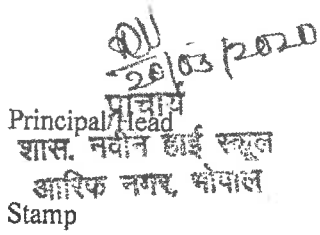 20/03/2020
प्राचार्य
Principal/Head
शास. नवीन हाई स्कूल
आरिफ नगर, भोपाल
Stamp